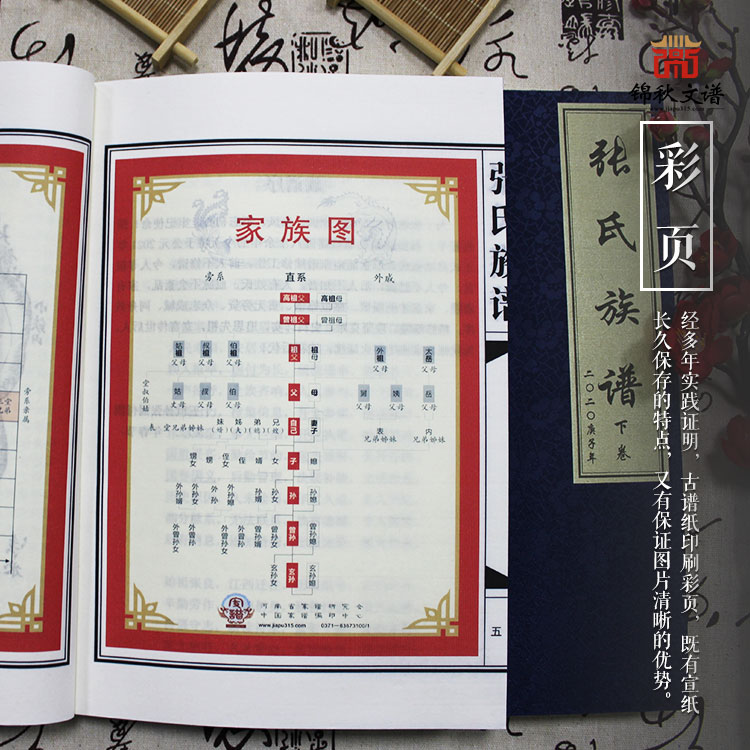 锦秋文谱
www.jiapu315.com
彩页
经多年实践证明，古谱纸印刷彩页，既有宣纸
长久保存的特点，又有保证图片清晰的优势。
张氏族谱
下卷
二〇二〇庚子年
张氏族谱
五
家族图
旁系 直系 外戚
高祖父 高祖母
曾祖父 曾祖母
姑祖父母 叔祖父母 伯祖父母 祖父 祖母 外祖父母 太岳父母
堂叔伯姑
姑父母 叔父母 伯父母 父 母 舅父母 姨父母 岳父母
表 堂兄弟姊妹 妹(婿) 姊(夫) 弟(媳) 兄(嫂) 自己 妻子 表兄弟姊妹 内兄弟姊妹
甥女 甥 侄女 侄 婿 女 子 媳
外孙媳 外孙女 外孙 孙婿 孙女 孙 孙媳
外曾孙女 外曾孙 曾孙婿 曾孙女 曾孙 曾孙媳
玄孙女 玄孙 玄孙媳
河南省家谱研究会
中国家谱编印中心
www.jiapu315.com 0371-63873100/1
旁系亲属